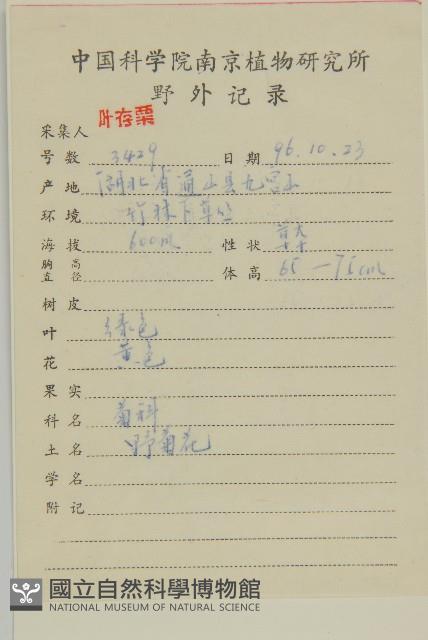 中国科学院南京植物研究所
野外记录
采集人 叶存粟
号数 3429 日期 96.10.23
产地 湖北省通山县九宫山
环境 竹林下草丛
海拔 600m 性状 草本
胸高直径 体高 65—75cm
树皮
叶 绿色
花 黄色
果实
科名 菊科
土名 野菊花
学名
附记
國立自然科學博物館
NATIONAL MUSEUM OF NATURAL SCIENCE